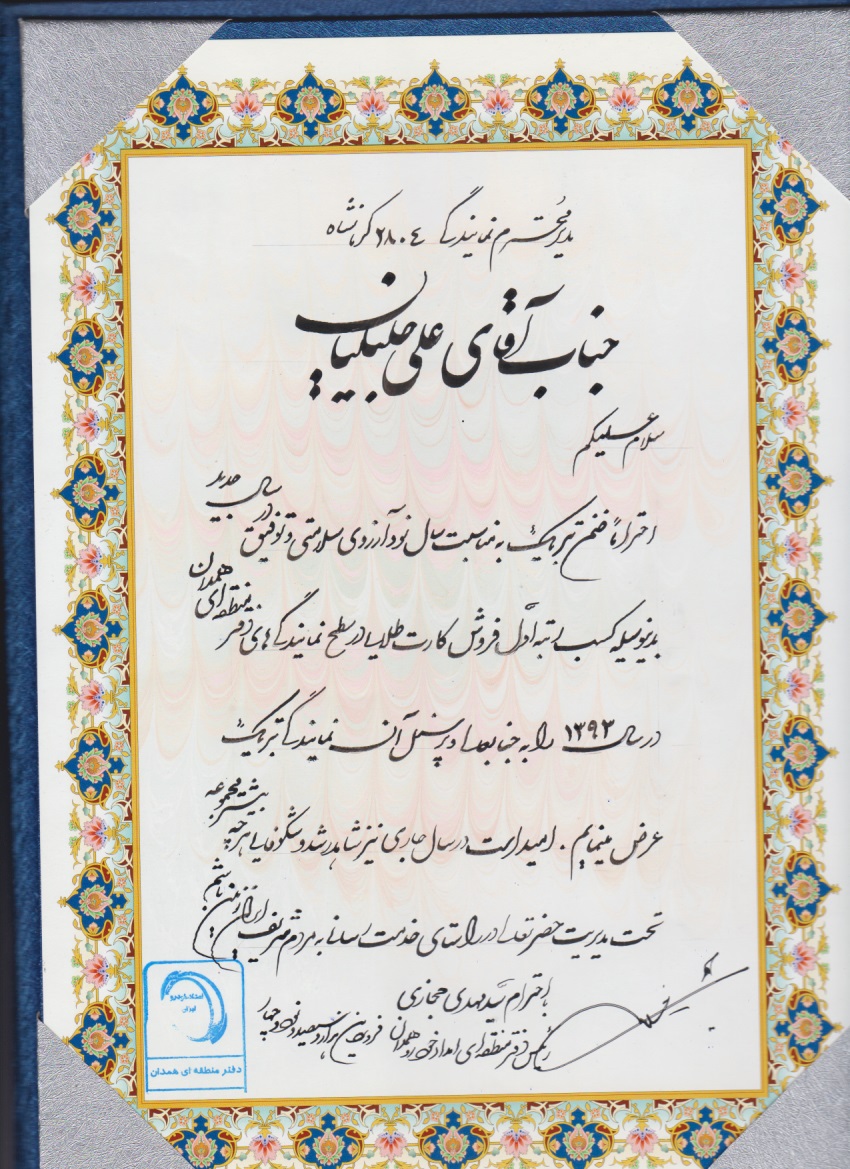 مدیر محترم نمایندگی ۲۸۰۴ کرمانشاه
جناب آقای علی جلیلیان
سلام علیکم
احتراماً ضمن تبریک به مناسبت سال نو و آرزوی سلامتی و توفیق در سال جدید
بدینوسیله کسب رتبه اوّل فروش کارت طلایی در سطح نمایندگی های دفتر منطقه ای همدان
در سال ۱۳۹۳ را به جنابعالی و پرسنل آن نمایندگی تبریک
عرض مینمایم . امید است در سال جاری نیز شاهد رشد و شکوفایی هرچه بیشتر مجموعه
تحت مدیریت حضرتعالی در راستای خدمت رسانی به مردم شریف ایران زمین باشیم
با احترام سیّد مهدی حجازی
رئیس دفتر منطقه ای امداد خودرو همدان فروردین هزار و سیصد و نود و چهار
امداد خودرو
ایران
دفتر منطقه ای همدان